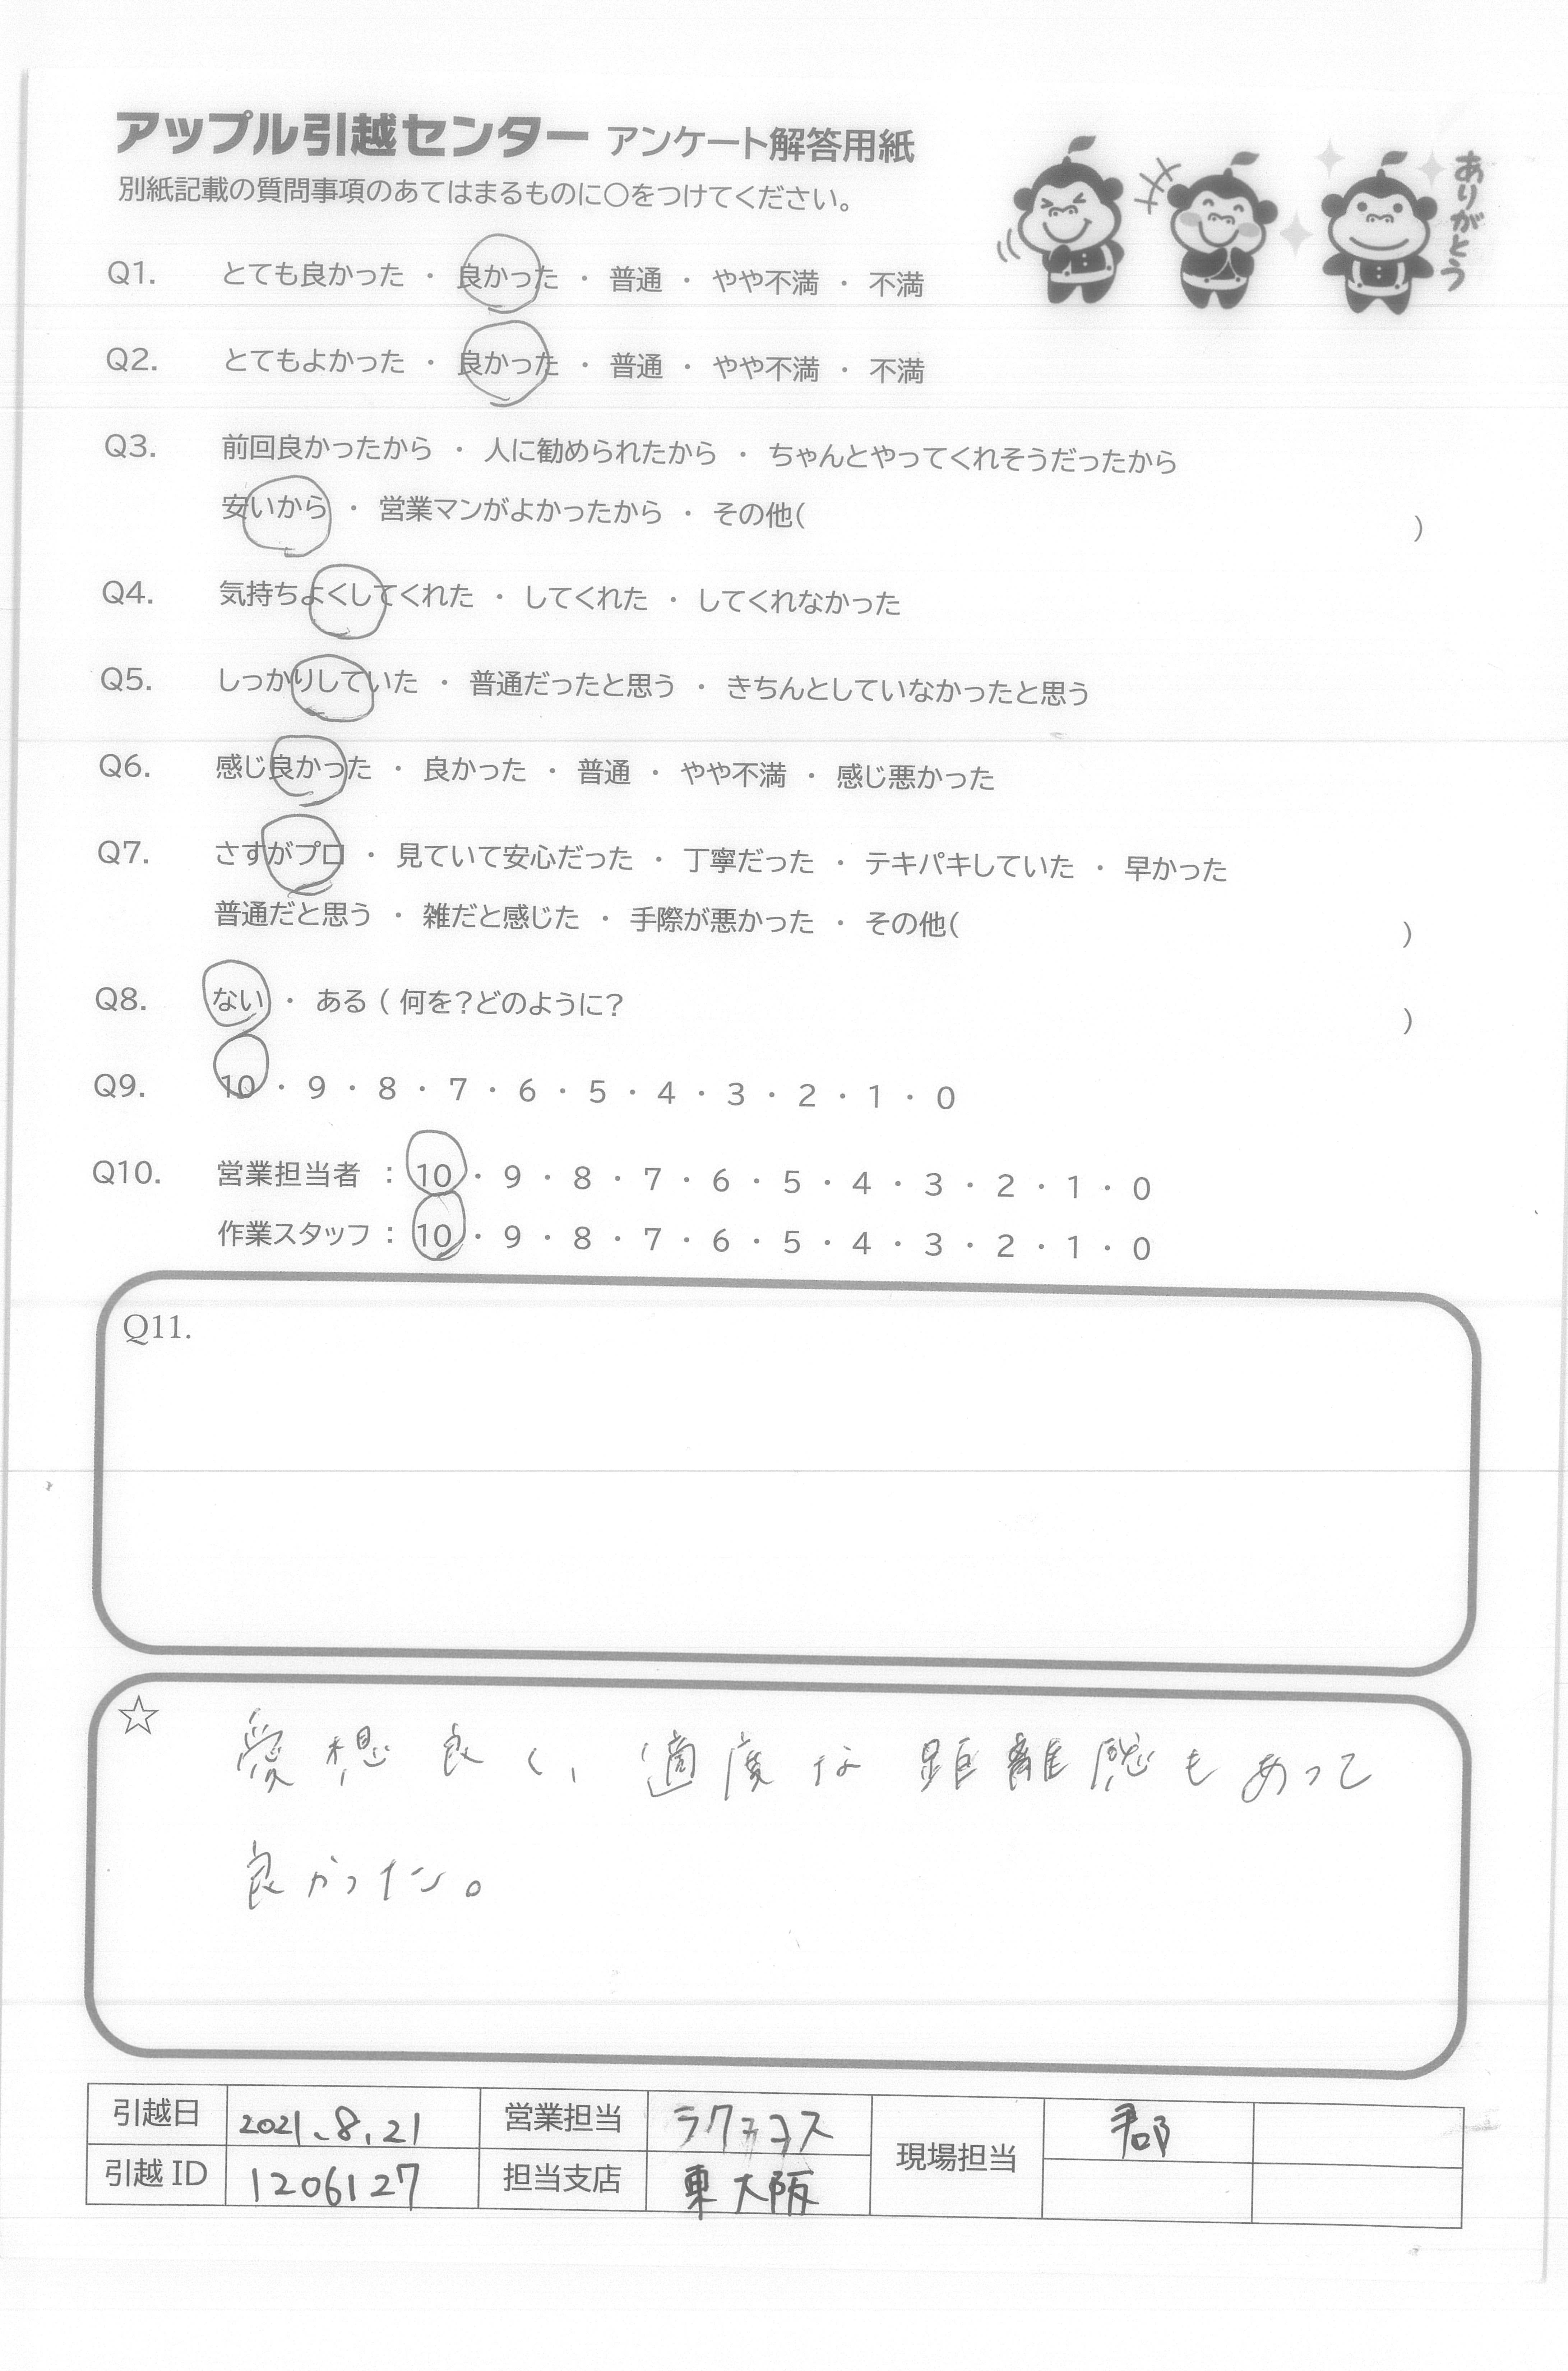 アップル引越センター アンケート解答用紙
ありがとう
別紙記載の質問事項のあてはまるものに〇をつけてください。
Q1. とても良かった ・ 良かった ・ 普通 ・ やや不満 ・ 不満
Q2. とてもよかった ・ 良かった ・ 普通 ・ やや不満 ・ 不満
Q3. 前回良かったから ・ 人に勧められたから ・ ちゃんとやってくれそうだったから
安いから ・ 営業マンがよかったから ・ その他( )
Q4. 気持ちよくしてくれた ・ してくれた ・ してくれなかった
Q5. しっかりしていた ・ 普通だったと思う ・ きちんとしていなかったと思う
Q6. 感じ良かった ・ 良かった ・ 普通 ・ やや不満 ・ 感じ悪かった
Q7. さすがプロ ・ 見ていて安心だった ・ 丁寧だった ・ テキパキしていた ・ 早かった
普通だと思う ・ 雑だと感じた ・ 手際が悪かった ・ その他( )
Q8. ない ・ ある ( 何を?どのように? )
Q9. 10 ・ 9 ・ 8 ・ 7 ・ 6 ・ 5 ・ 4 ・ 3 ・ 2 ・ 1 ・ 0
Q10. 営業担当者 : 10 ・ 9 ・ 8 ・ 7 ・ 6 ・ 5 ・ 4 ・ 3 ・ 2 ・ 1 ・ 0
作業スタッフ : 10 ・ 9 ・ 8 ・ 7 ・ 6 ・ 5 ・ 4 ・ 3 ・ 2 ・ 1 ・ 0
Q11.
☆ 愛想良く、適度な距離感もあって
良かった。
引越日 2021.8.21 営業担当 現場担当 郡
引越ID 1206127 担当支店 東大阪